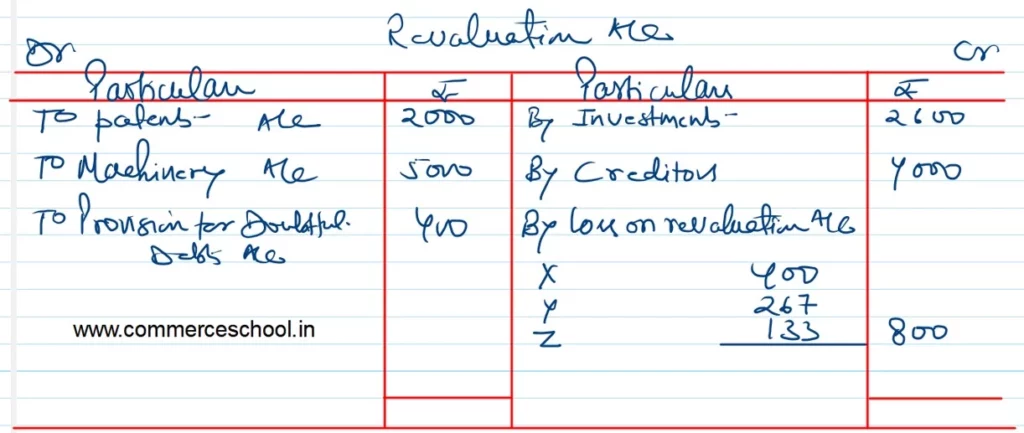 Revaluation A/c
Dr Cr
Particulars ₹ Particulars ₹
To patents- A/c 2000 By Investments- 2600
To Machinery A/c 5000 By Creditors 4000
To Provision for Doubtful 400 By loss on revaluation A/c
Debts A/c
X 400
Y 267
www.commerceschool.in Z 133 800